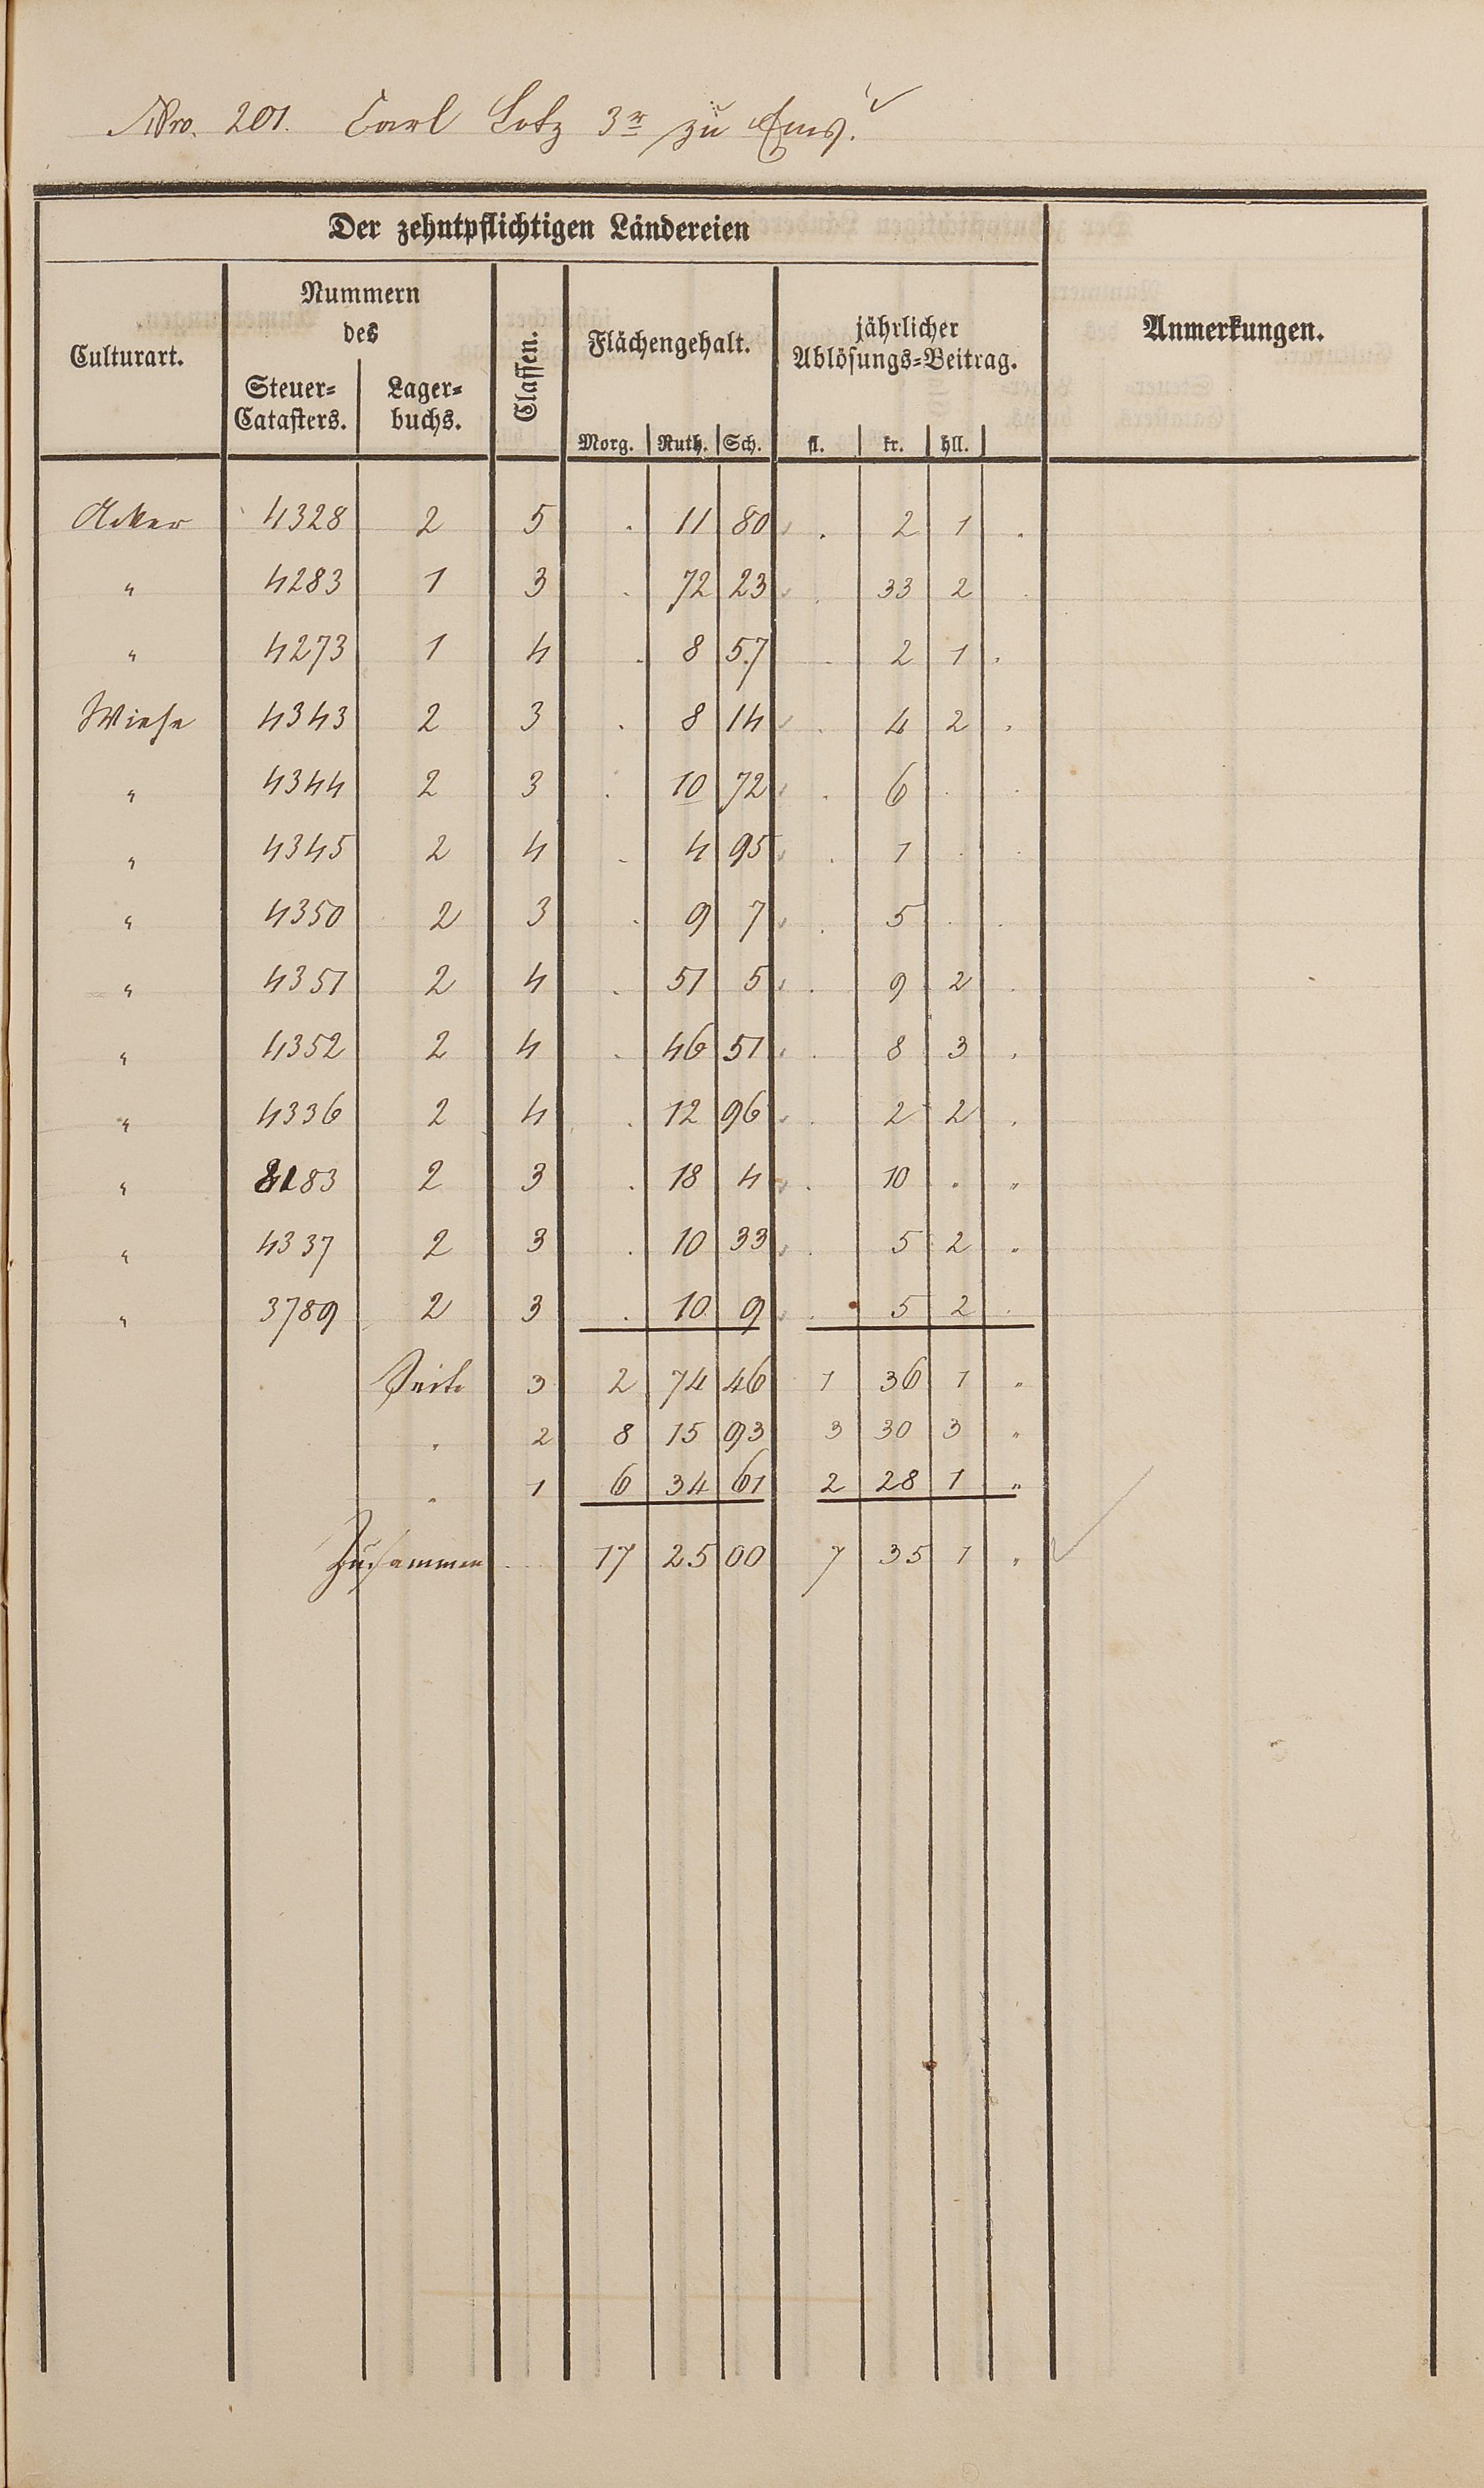 Nro. 201. Carl Lotz 3r zu Ems.
Der zehntpflichtigen Ländereien
Culturart.
Nummern
des
Steuer=
Catasters.
Lager=
buchs.
Classen.
Flächengehalt.
Morg. Ruth. Sch.
jährlicher
Ablösungs=Beitrag.
fl. kr. hll.
Anmerkungen.
Acker 4328 2 5 . 11 80 . 2 1 .
" 4283 1 3 . 72 23 . 33 2 .
" 4273 1 4 . 8 57 . 2 1 .
Wiese 4343 2 3 . 8 14 . 4 2 .
" 4344 2 3 . 10 72 . 6 . .
" 4345 2 4 . 4 95 . 1 . .
" 4350 2 3 . 9 7 . 5 . .
" 4351 2 4 . 51 5 . 9 2 .
" 4352 2 4 . 46 51 . 8 3 .
" 4336 2 4 . 12 96 . 2 2 .
" 8183 2 3 . 18 4 . 10 . "
" 4337 2 3 . 10 33 . 5 2 "
" 3789 2 3 . 10 9 . 5 2 .
Seite 3 2 74 46 1 36 1 "
" 2 8 15 93 3 30 3 "
" 1 6 34 61 2 28 1 "
Zusammen 17 25 00 7 35 1 "